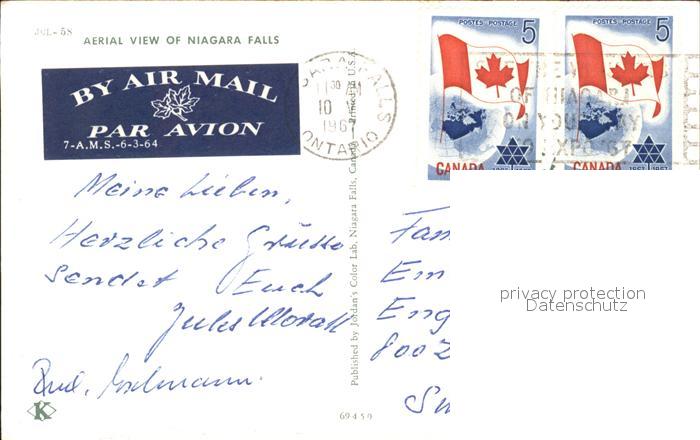 JCL-58
AERIAL VIEW OF NIAGARA FALLS
BY AIR MAIL
PAR AVION
7-A.M.S.-6-3-64
11 30 AM
10 V
1967
ONTARIO
POSTES POSTAGE 5
CANADA
POSTES POSTAGE 5
CANADA 1867 1967
OF NIAGARA
EXPO 67
Meine Lieben,
Herzliche Grüsse
sendet Euch
Published by Jordan's Color Lab, Niagara Falls, Canada — Printed in U.S.A.
Fam
Em
Eng
8002
Sw
privacy protection
Datenschutz
K
69450